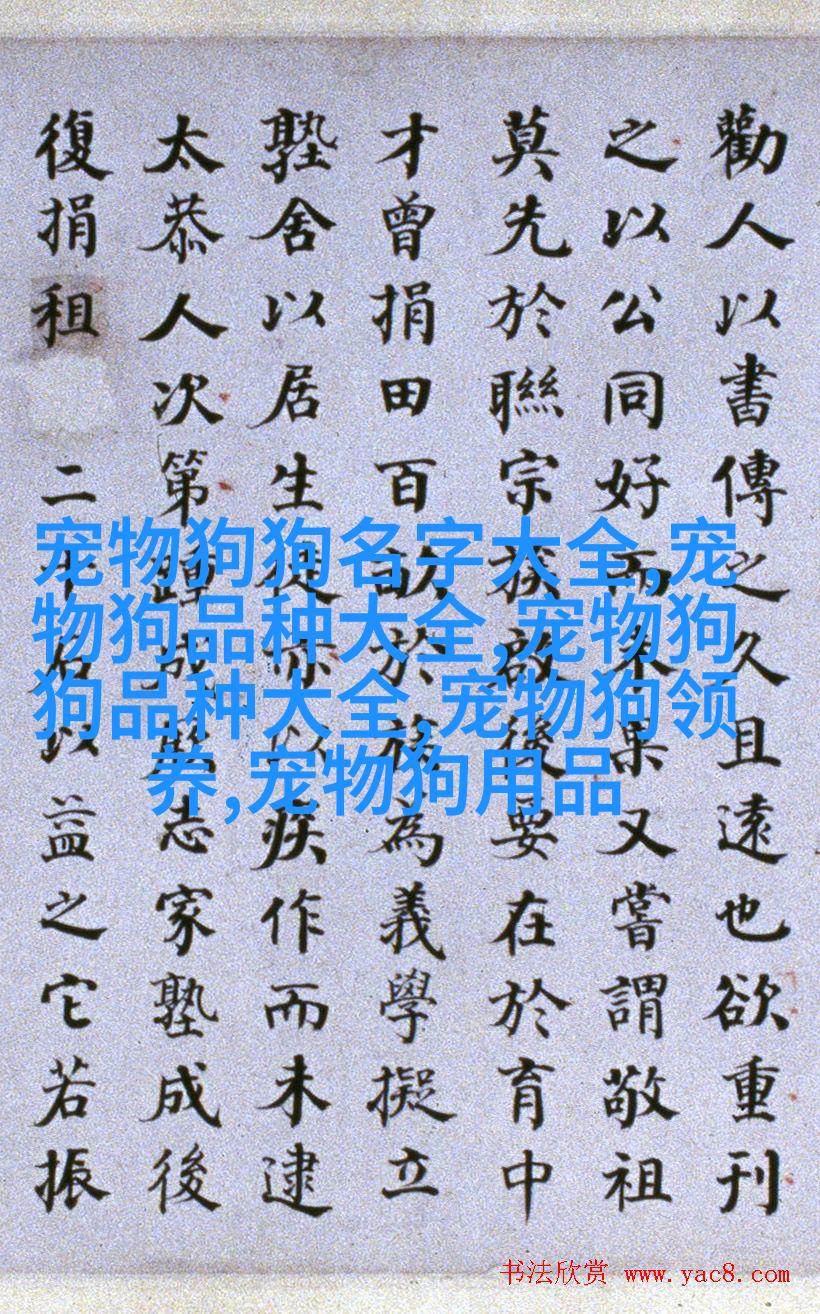 勸人以書傳之久且遠也欲重刊
之以公同好而未果又嘗謂敬祖
莫先於聯宗族啟後要在於育中
才曾捐田百畝於族為義學擬立
塾舍以居生徒亦以疾作而未逮
太恭人次第踵成志家塾成後
復捐租二以益之它若振
宠物狗狗名字大全,宠
物狗品种大全,宠物狗
狗品种大全,宠物狗领
养,宠物狗用品
书法欣赏 www.yac8.com